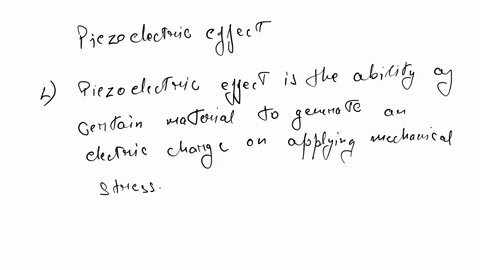 Piezoelectric effect
↳) Piezoelectric effect is the ability of
certain material to generate an
electric charge on applying mechanical
stress.